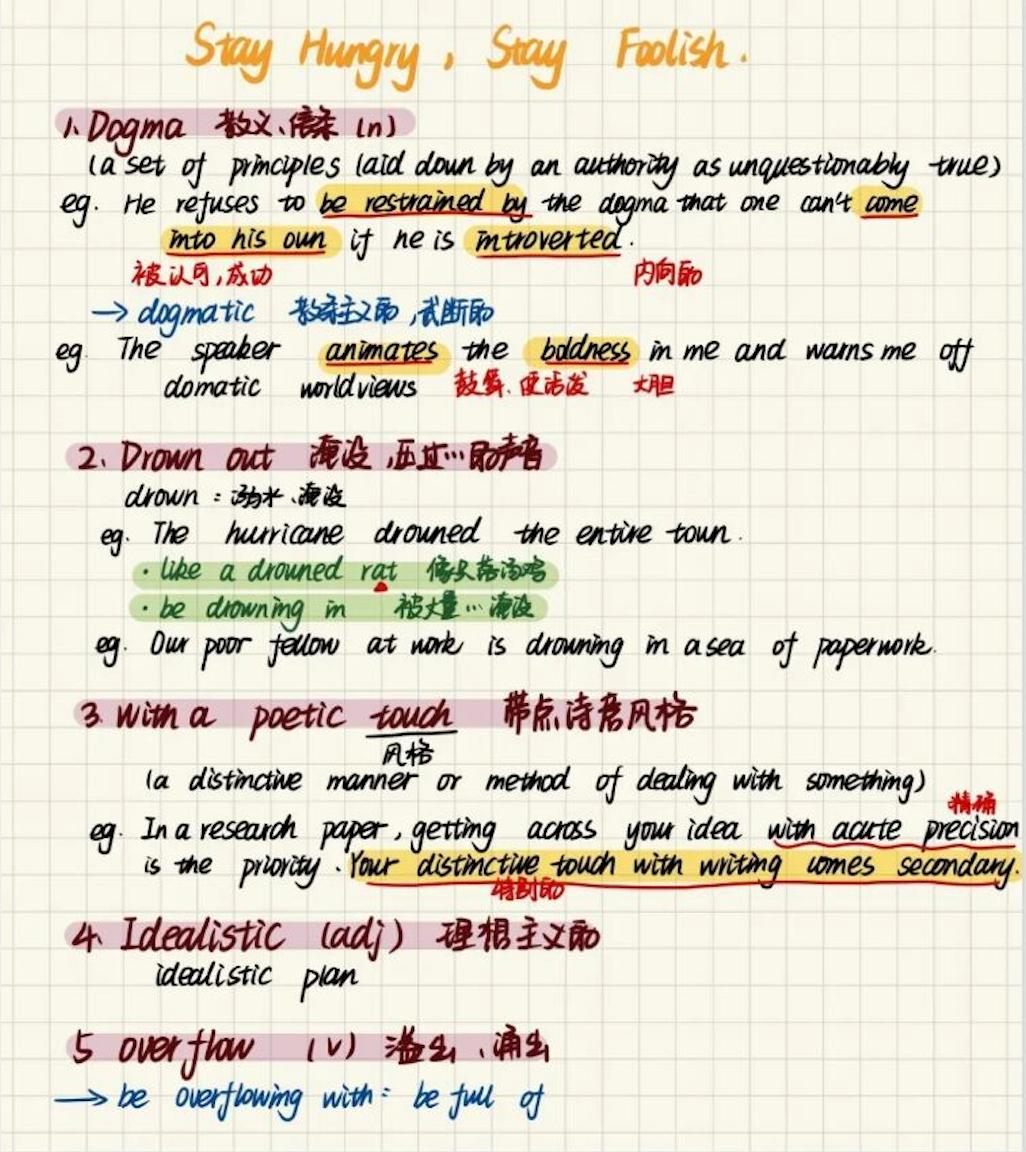 Stay Hungry, Stay Foolish.
1. Dogma 教义、信条 (n)
(a set of principles laid down by an authority as unquestionably true)
eg. He refuses to be restrained by the dogma that one can't come
into his own if he is introverted.
被认可,成功 内向的
→ dogmatic 教条主义的,武断的
eg. The speaker animates the boldness in me and warns me off
domatic worldviews 鼓舞.使活泼 大胆
2. Drown out 淹没,压过…的声音
drown : 溺水、淹没
eg. The hurricane drowned the entire town.
· like a drowned rat 像只落汤鸡
· be drowning in 被大量…淹没
eg. Our poor fellow at work is drowning in a sea of paperwork.
3. with a poetic touch 带点诗意风格
风格
(a distinctive manner or method of dealing with something)
精确
eg. In a research paper, getting across your idea with acute precision
is the priority. Your distinctive touch with writing comes secondary.
特别的
4. Idealistic (adj) 理想主义的
idealistic plan
5 overflow (v) 溢出、涌出
→ be overflowing with: be full of